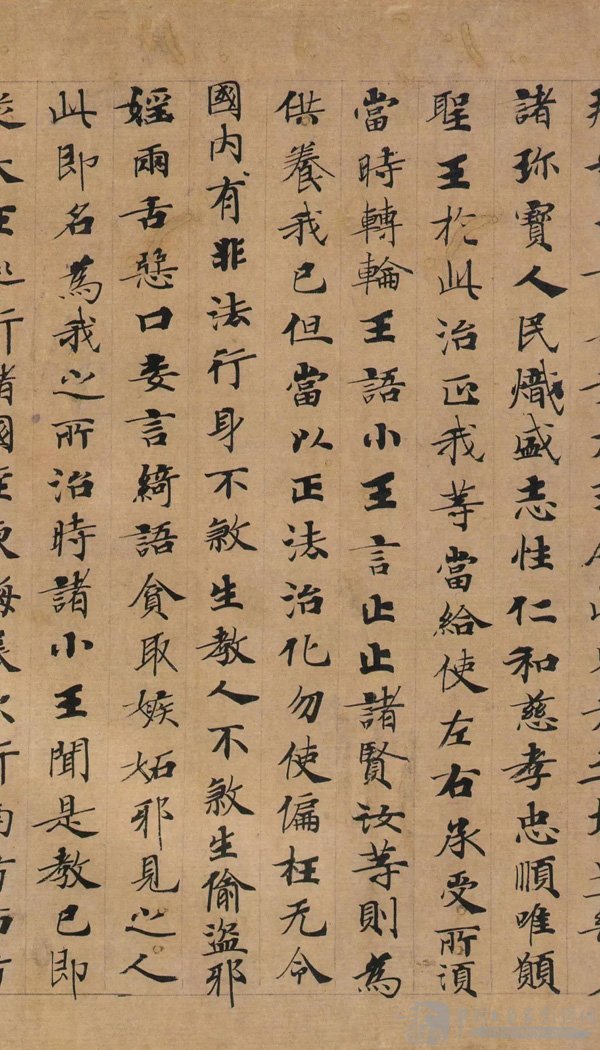 諸珎寶人民熾盛志性仁和慈孝忠順唯願
聖王於此治正我等當給使左右承受所須
當時轉輪王語小王言止止諸賢汝等則為
供養我已但當以正法治化勿使偏枉无令
國内有非法行身不煞生教人不煞生偷盜邪
婬兩舌惡口妄言綺語貪取嫉妬邪見之人
此即名為我之所治時諸小王聞是教已即
大王行諸國東海次行南方西方